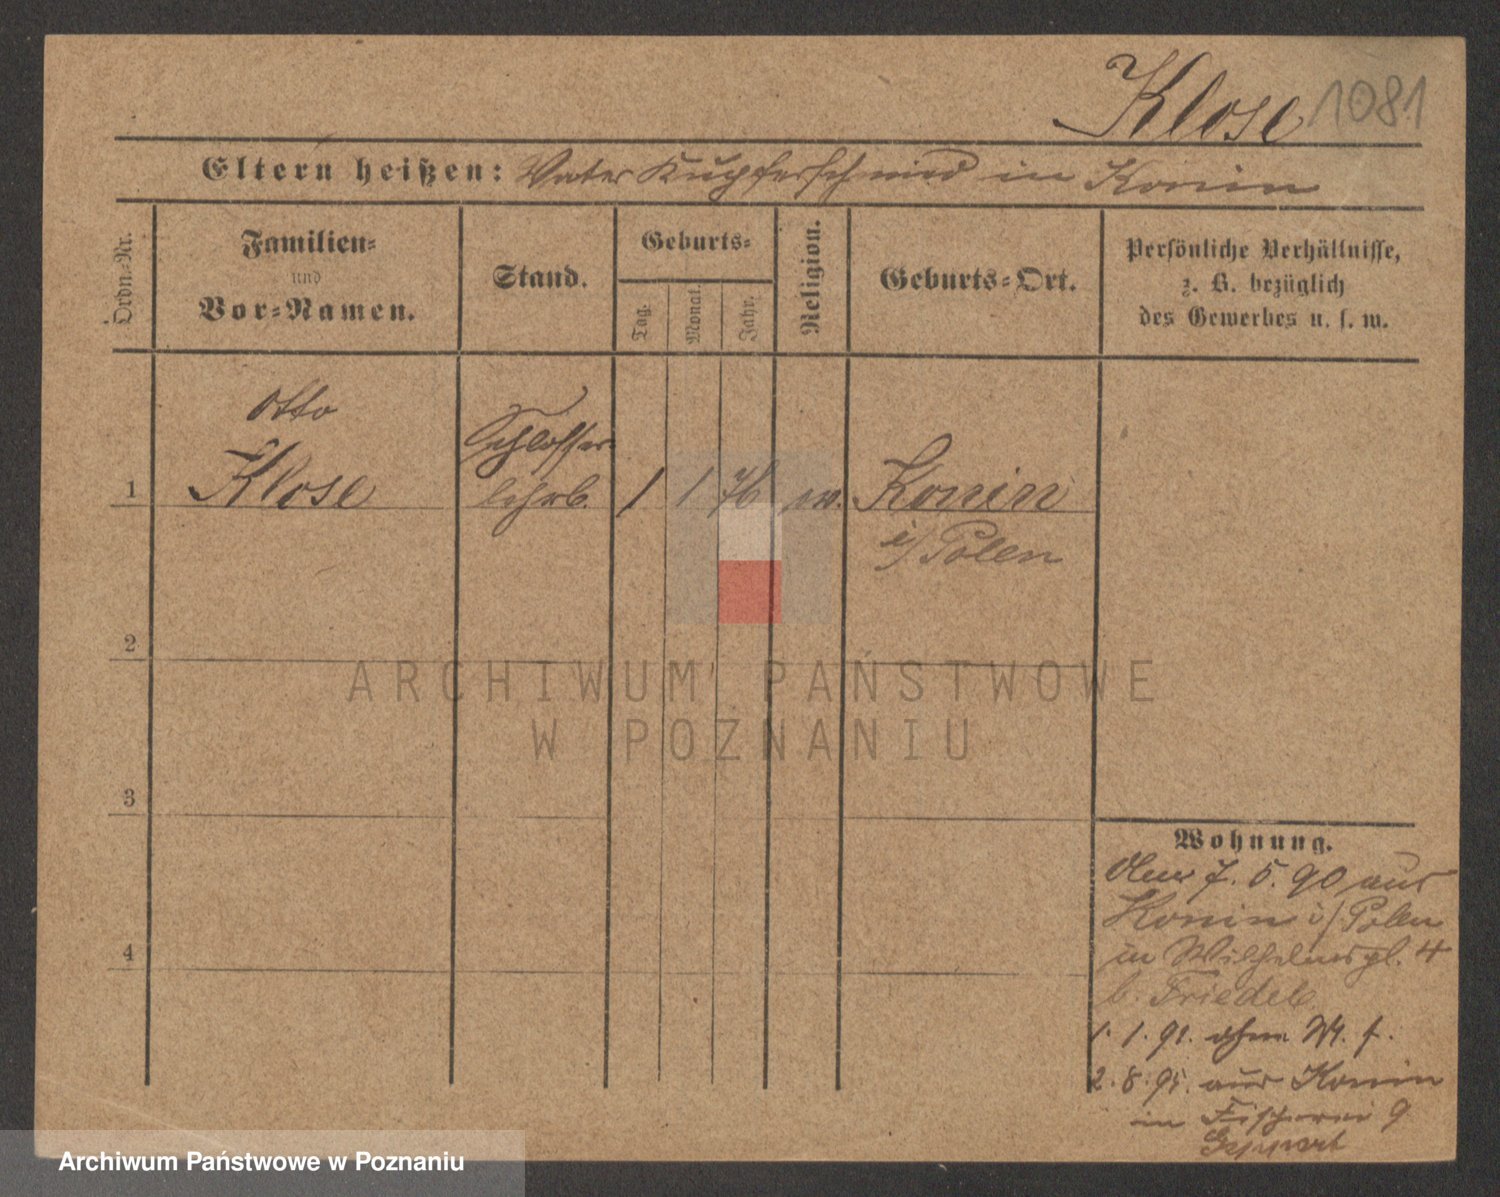 Klose 1081
Eltern heißen: Vater Kupferschmied in Konin
Ordn.-Nr.
Familien-
und
Vor-Namen.
Stand.
Geburts-
Tag.
Monat.
Jahr.
Religion.
Geburts-Ort.
Persönliche Verhältnisse,
z. B. bezüglich
des Gewerbes u. s. w.
Otto
Klose
Schlosser-
lehrl.
1 1 1 76 ev. Konin
i/Polen
2
3
4
Wohnung.
7. 5. 90 aus
Konin i/Polen
in Wilhelmspl. 4
b. Friedel
1. 1. 91. ohne
2. 8. 95. aus Konin
in Fischerei 9
Geppert
ARCHIWUM PAŃSTWOWE
W POZNANIU
Archiwum Państwowe w Poznaniu